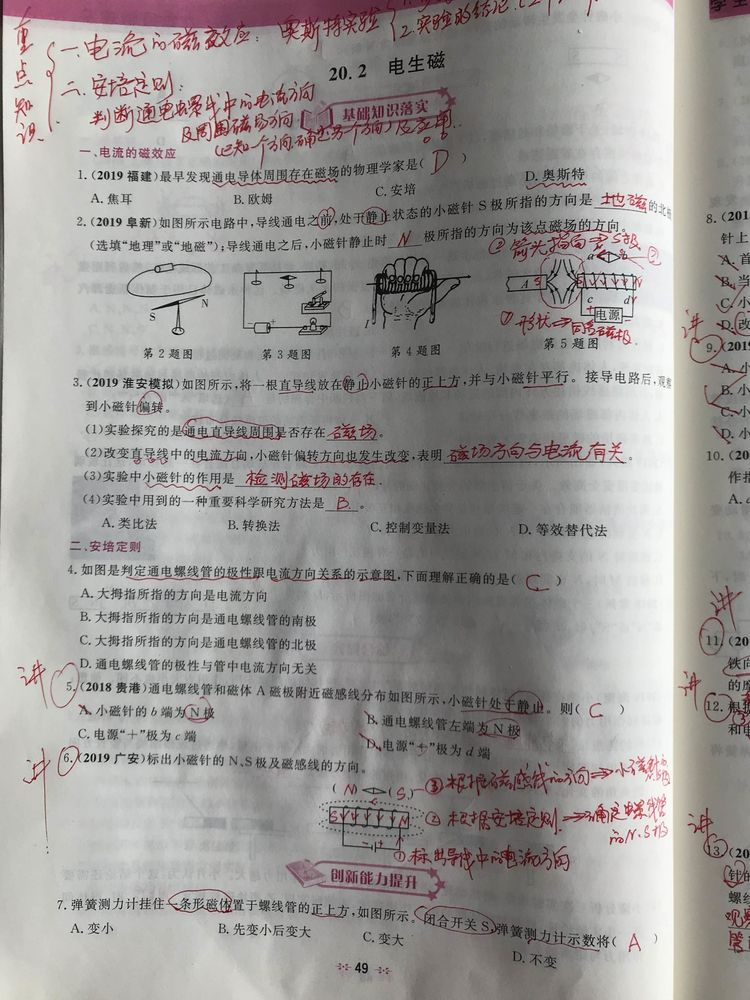 重点知识
一、电流的磁效应：奥斯特实验
2.实验的结论
二、安培定则：
判断通电螺线中的电流方向
及周围磁场方向
(已知一个方向,确定另个方向)及应用.
20.2 电生磁
基础知识落实
一、电流的磁效应
1.(2019 福建)最早发现通电导体周围存在磁场的物理学家是( D )
A.焦耳 B.欧姆 C.安培 D.奥斯特
2.(2019 阜新)如图所示电路中,导线通电之前,处于静止状态的小磁针 S 极所指的方向是 地磁 的北极
(选填“地理”或“地磁”);导线通电之后,小磁针静止时 N 极所指的方向为该点磁场的方向。
②箭头指向→S极
a b ②
S N
A S S N
c d
电源
①形状→同名磁极.
第 2 题图 第 3 题图 第 4 题图 第 5 题图
3.(2019 淮安模拟)如图所示,将一根直导线放在静止小磁针的正上方,并与小磁针平行。接导电路后,观察
到小磁针偏转。
(1)实验探究的是通电直导线周围是否存在 磁场 。
(2)改变直导线中的电流方向,小磁针偏转方向也发生改变,表明 磁场方向与电流有关 。
(3)实验中小磁针的作用是 检测磁场的存在 .
(4)实验中用到的一种重要科学研究方法是 B 。
A.类比法 B.转换法 C.控制变量法 D.等效替代法
二、安培定则
4.如图是判定通电螺线管的极性跟电流方向关系的示意图,下面理解正确的是( C )
A.大拇指所指的方向是电流方向
B.大拇指所指的方向是通电螺线管的南极
C.大拇指所指的方向是通电螺线管的北极
D.通电螺线管的极性与管中电流方向无关
讲 5.(2018 贵港)通电螺线管和磁体 A 磁极附近磁感线分布如图所示,小磁针处于静止。则( C )
A.小磁针的 b 端为 N 极 B.通电螺线管左端为 N 极
C.电源“+”极为 c 端 D.电源“+”极为 d 端
讲 6.(2019 广安)标出小磁针的 N、S 极及磁感线的方向。
( N ) ( S ) ③根据磁感线的方向⇒小磁针的
S N ②根据安培定则.⇒确定螺线管
的N.S极
①标出导线中的电流方向
创新能力提升
7.弹簧测力计挂住一条形磁体置于螺线管的正上方,如图所示。闭合开关 S,弹簧测力计示数将( A )
A.变小 B.先变小后变大 C.变大 D.不变
49
学生
8.(20
针上
A.首
B.当
C.小
D.改
讲
9.(2019
A.小
B.小
C.小
D.小
10.(20
作指
A.a
讲
11.(20
铁向
的磨
讲
12.根据
和电
讲
13.(20
针的
螺线